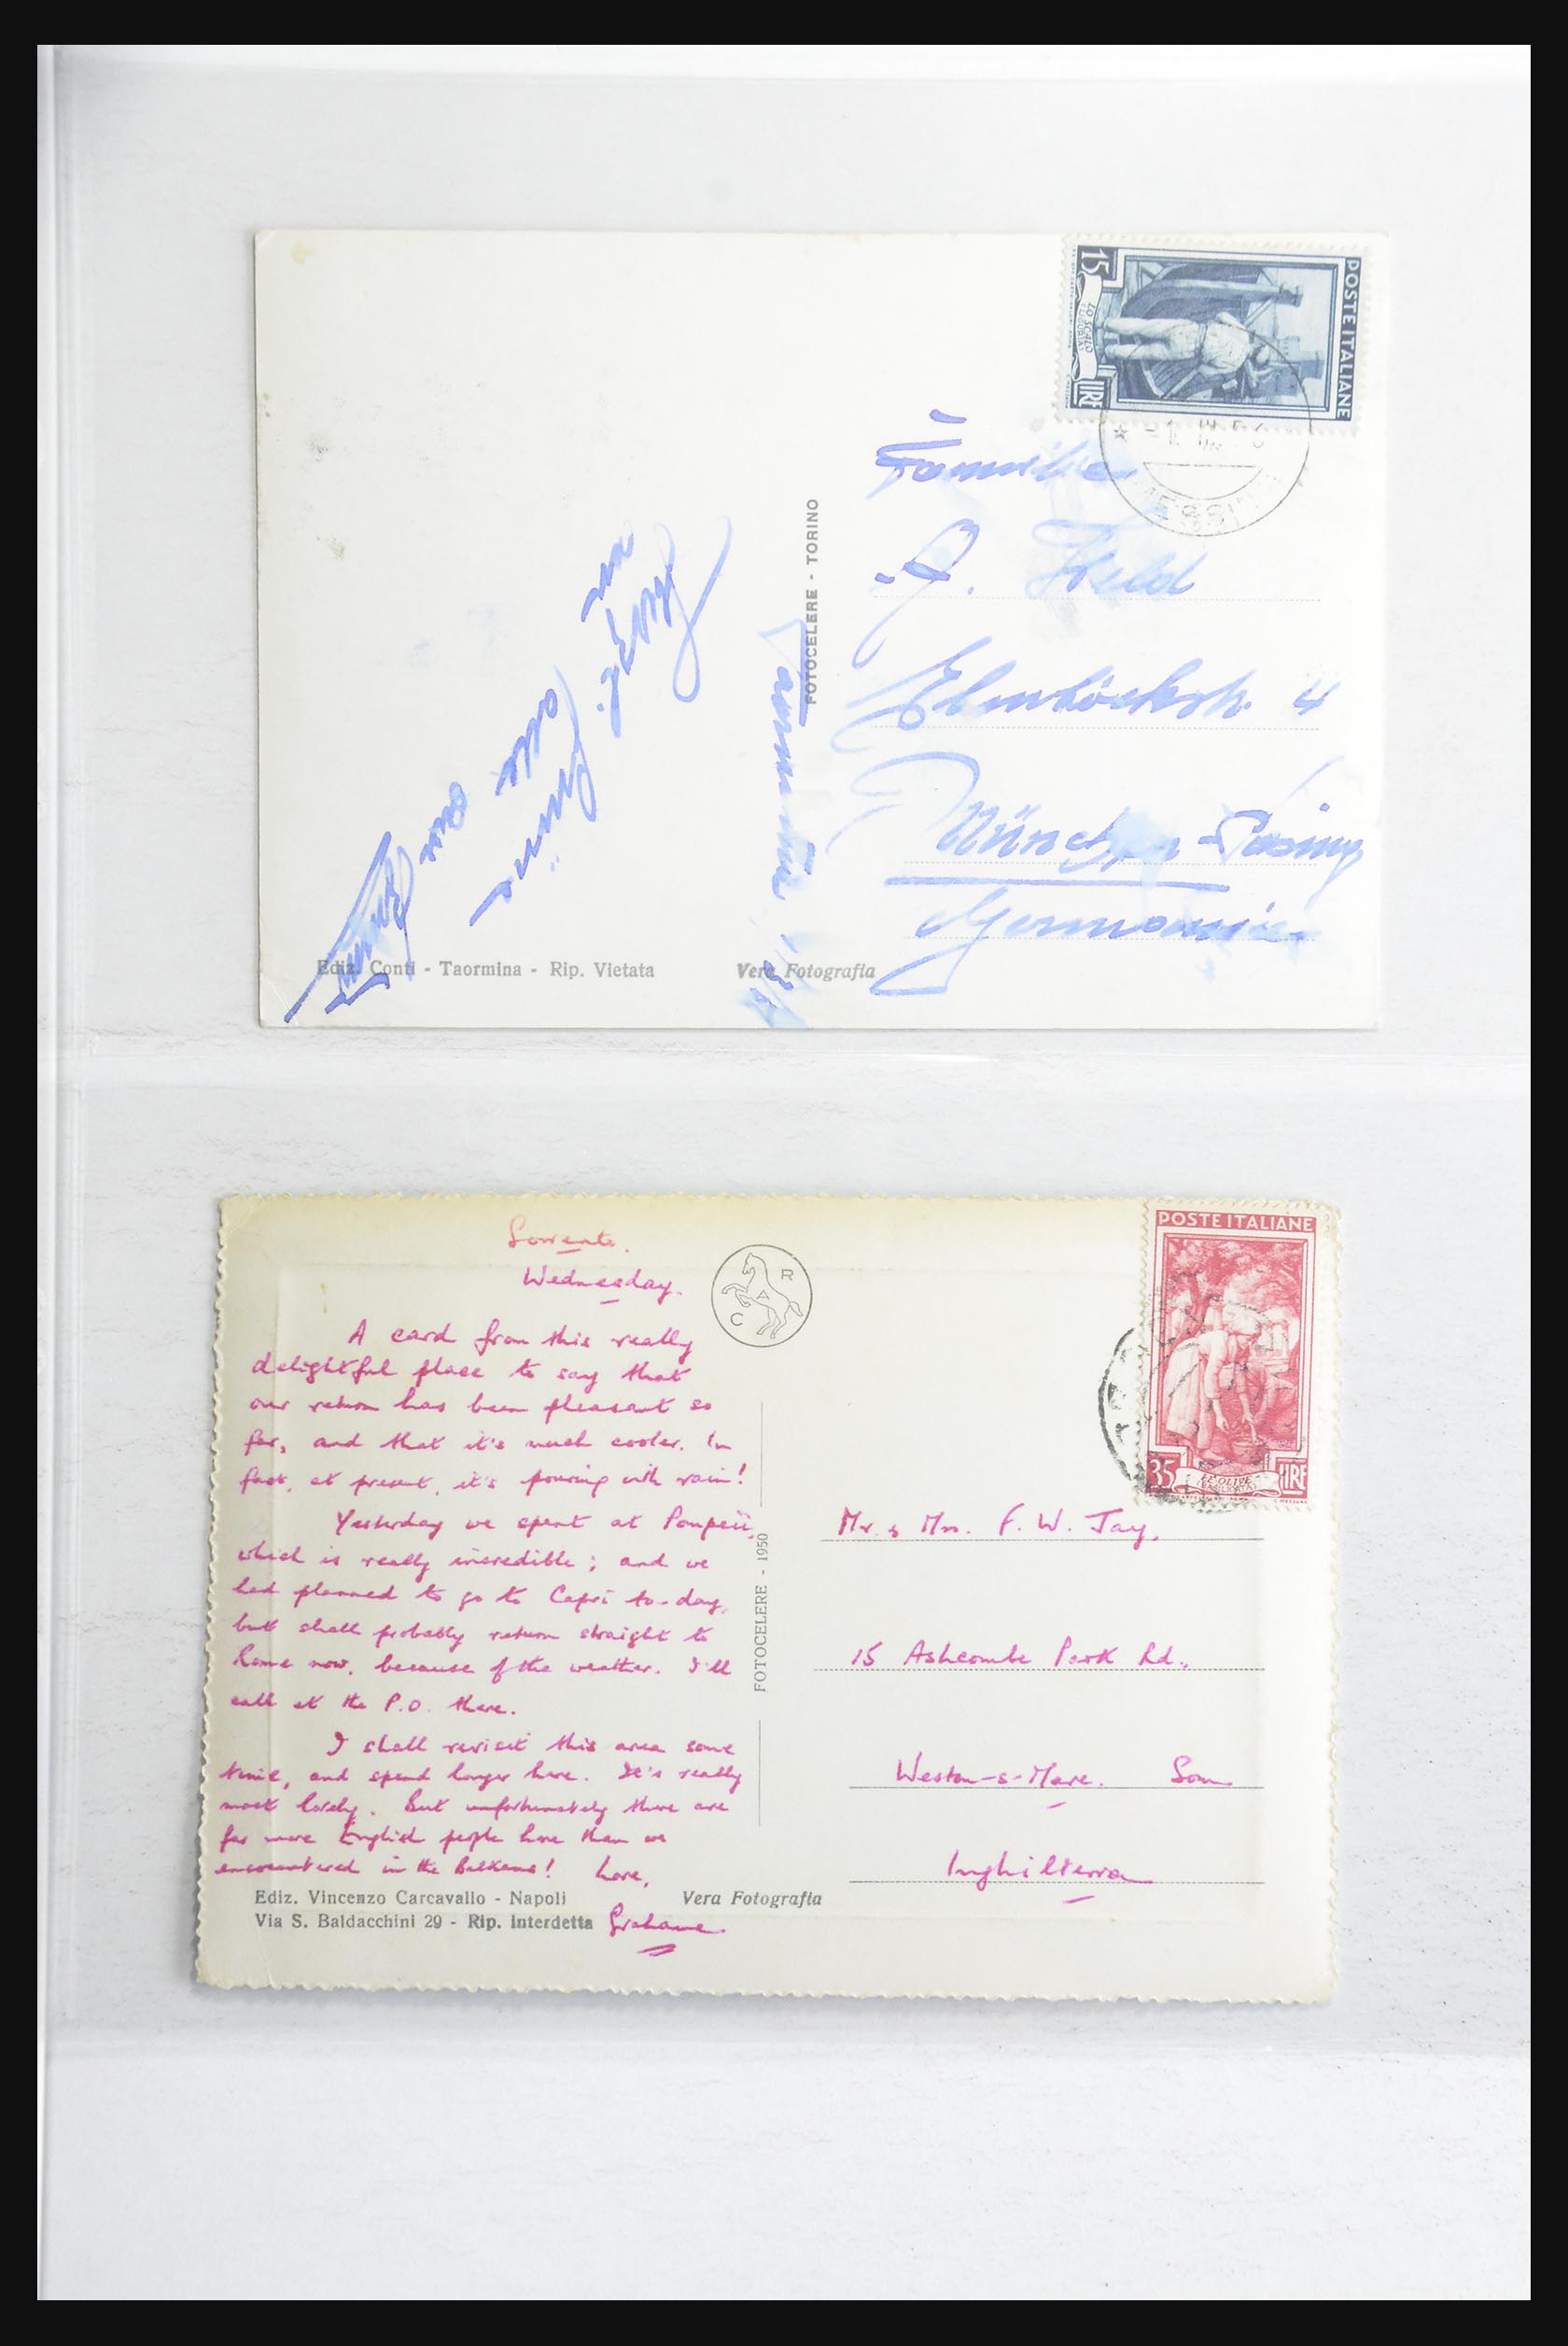 POSTE ITALIANE
15 LIRE
LO SCALO
Familie
J. Held
Ebenböckstr. 4
München-Pasing
Germania
FOTOCELERE - TORINO
Ediz. Conti - Taormina - Rip. Vietata
Vera Fotografia
Sorrento.
Wednesday.
A card from this really
delightful place to say that
our return has been pleasant so
far, and that it's much cooler. In
fact, at present, it's pouring with rain!
Yesterday we spent at Pompeii,
which is really incredible; and we
had planned to go to Capri to-day,
but shall probably return straight to
Rome now, because of the weather. I'll
call at the P.O. there.
I shall revisit this area some
time, and spend longer here. It's really
most lovely. But unfortunately there are
far more English people here than we
encountered in the Balkans! Love,
Grahame
Ediz. Vincenzo Carcavallo - Napoli
Via S. Baldacchini 29 - Rip. Interdetta
Vera Fotografia
C A R
FOTOCELERE - 1950
POSTE ITALIANE
35 LIRE
LE OLIVE
Mr. & Mrs. F. W. Jay,
15 Ashcombe Park Rd.,
Weston-s-Mare. Som
Inghilterra